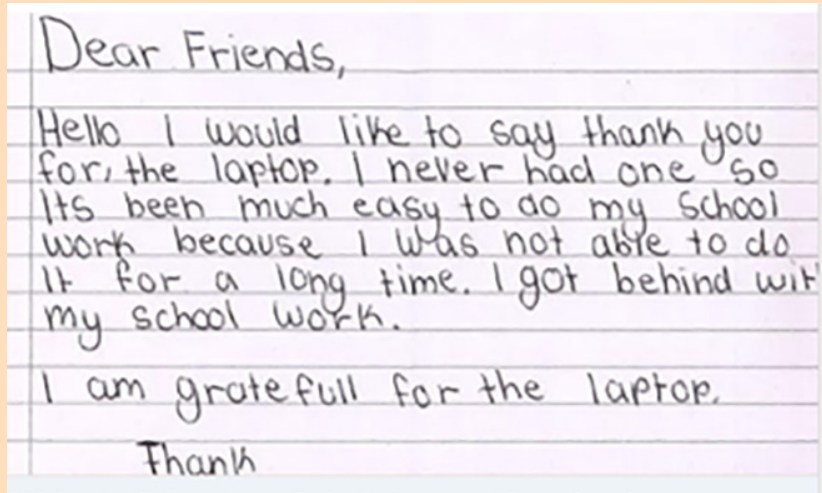 Dear Friends,
Hello I would like to say thank you
for, the laptop. I never had one so
Its been much easy to do my School
work because I was not able to do
It for a long time. I got behind wit
my school work.
I am gratefull for the laptop.
Thank